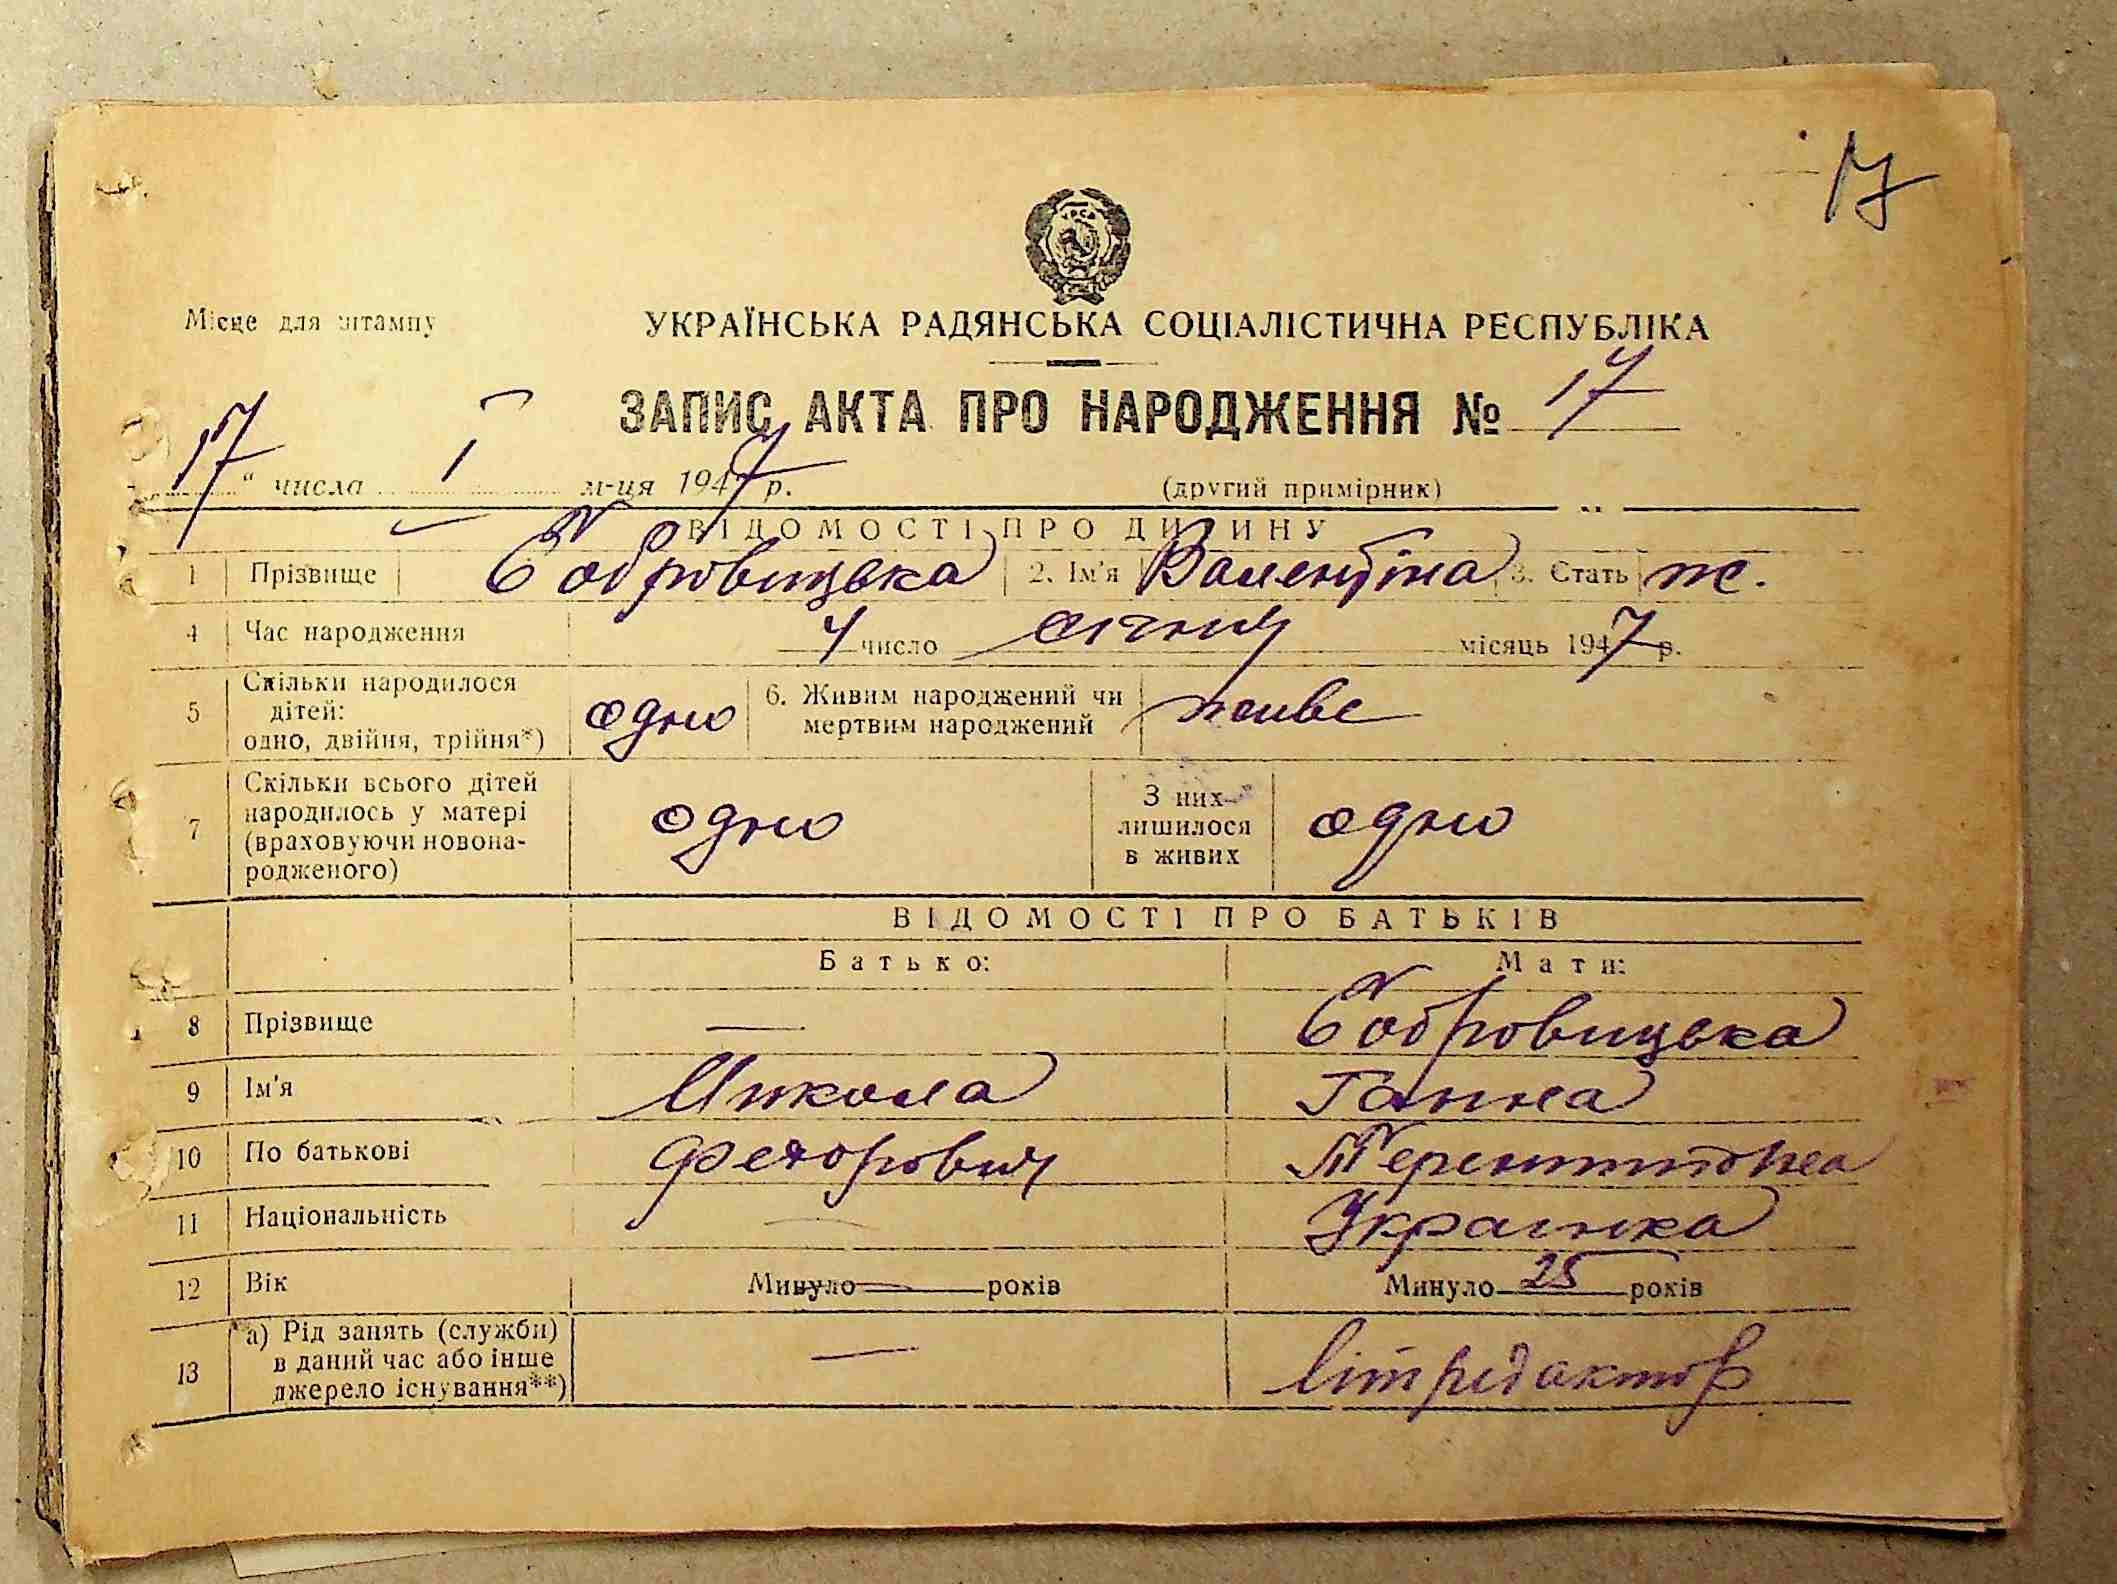 17
УРСР
Місце для штампу
УКРАЇНСЬКА РАДЯНСЬКА СОЦІАЛІСТИЧНА РЕСПУБЛІКА
ЗАПИС АКТА ПРО НАРОДЖЕННЯ № 17
17 " числа І м-ця 1947 р. (другий примірник)
ВІДОМОСТІ ПРО ДИТИНУ
1 Прізвище Бобровицька 2. Ім'я Валентіна 3. Стать ж.
4 Час народження 4 число січня місяць 1947 р.
5 Скільки народилося дітей: одно, двійня, трійня*) одно 6. Живим народжений чи мертвим народжений живе
7 Скільки всього дітей народилось у матері (враховуючи новонародженого) одно З них лишилося в живих одно
ВІДОМОСТІ ПРО БАТЬКІВ
Батько: Мати:
8 Прізвище — Бобровицька
9 Ім'я Микола Ганна
10 По батькові Федорович
11 Національність — Українка
12 Вік Минуло — років Минуло 25 років
13 а) Рід занять (служби) в даний час або інше джерело існування**) — літредактор